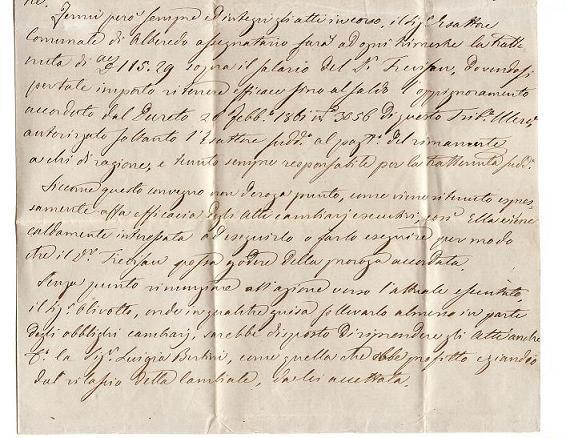 ne.
Fermi però sempre ed integri gli atti in corso, il Sig. Esattore
Comunale di Albaredo assegnatario farà ad ogni bimestre la tratte
nuta di 115.29 sopra il salario del Sr. Trevisan, dovendosi
per tale importo ritenere efficace fino al saldo oppignoramento
accordato dal Decreto 20 Febb.o 1861 N.o 3056 di questo Trib.
autorizzato soltanto l'Esattore sudd.o al pag.o del rimanente
a chi di ragione, e tenuto sempre responsabile per la trattenuta sudd.a
Siccome questo convegno non deroga punto, come viene ritenuto espres
samente alla efficacia degli Atti cambiarj esecutivi, così Ella viene
caldamente interessata ad eseguirlo o farlo eseguire per modo
che il Sr. Trevisan possa godere della proroga accordata.
Senza punto rinunziare all'azione verso l'attuale esecutato,
il Sig. Olivotto, onde in qualche guisa sollevarlo almeno in parte
dagli obblighi cambiarj, sarebbe disposto di riprendere gli Atti anche
C.o la Sig.a Luigia Bertini, come quella che ebbe profitto eziandio
dal rilascio della Cambiale, da lei accettata.